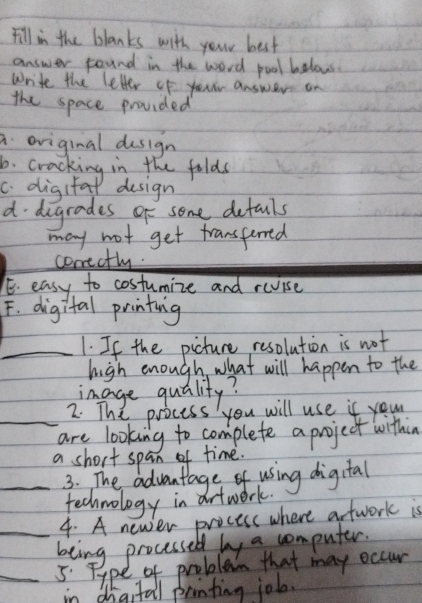 Fill in the blanks with your best
answer found in the word pool below.
Write the letter of your answer on
the space provided
a. original design
b. cracking in the folds
c. digital design
d. digrades of some details
may not get transferred
correctly.
E. easy to costumize and revise
F. digital printing
1. If the picture resolution is not
high enough, what will happen to the
image quality?
2. The process you will use if your
are looking to complete a project within
a short span of time.
3. The advantage of using digital
technology in artwork.
4. A newer process where artwork is
being processed by a computer.
5. Type of problem that may occur
in digital printing job.